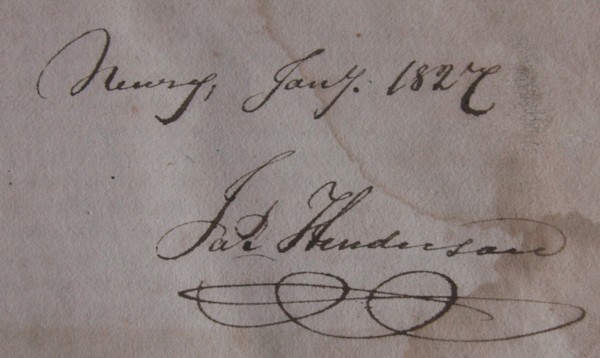 Newry, Jany. 1827
Jas Henderson